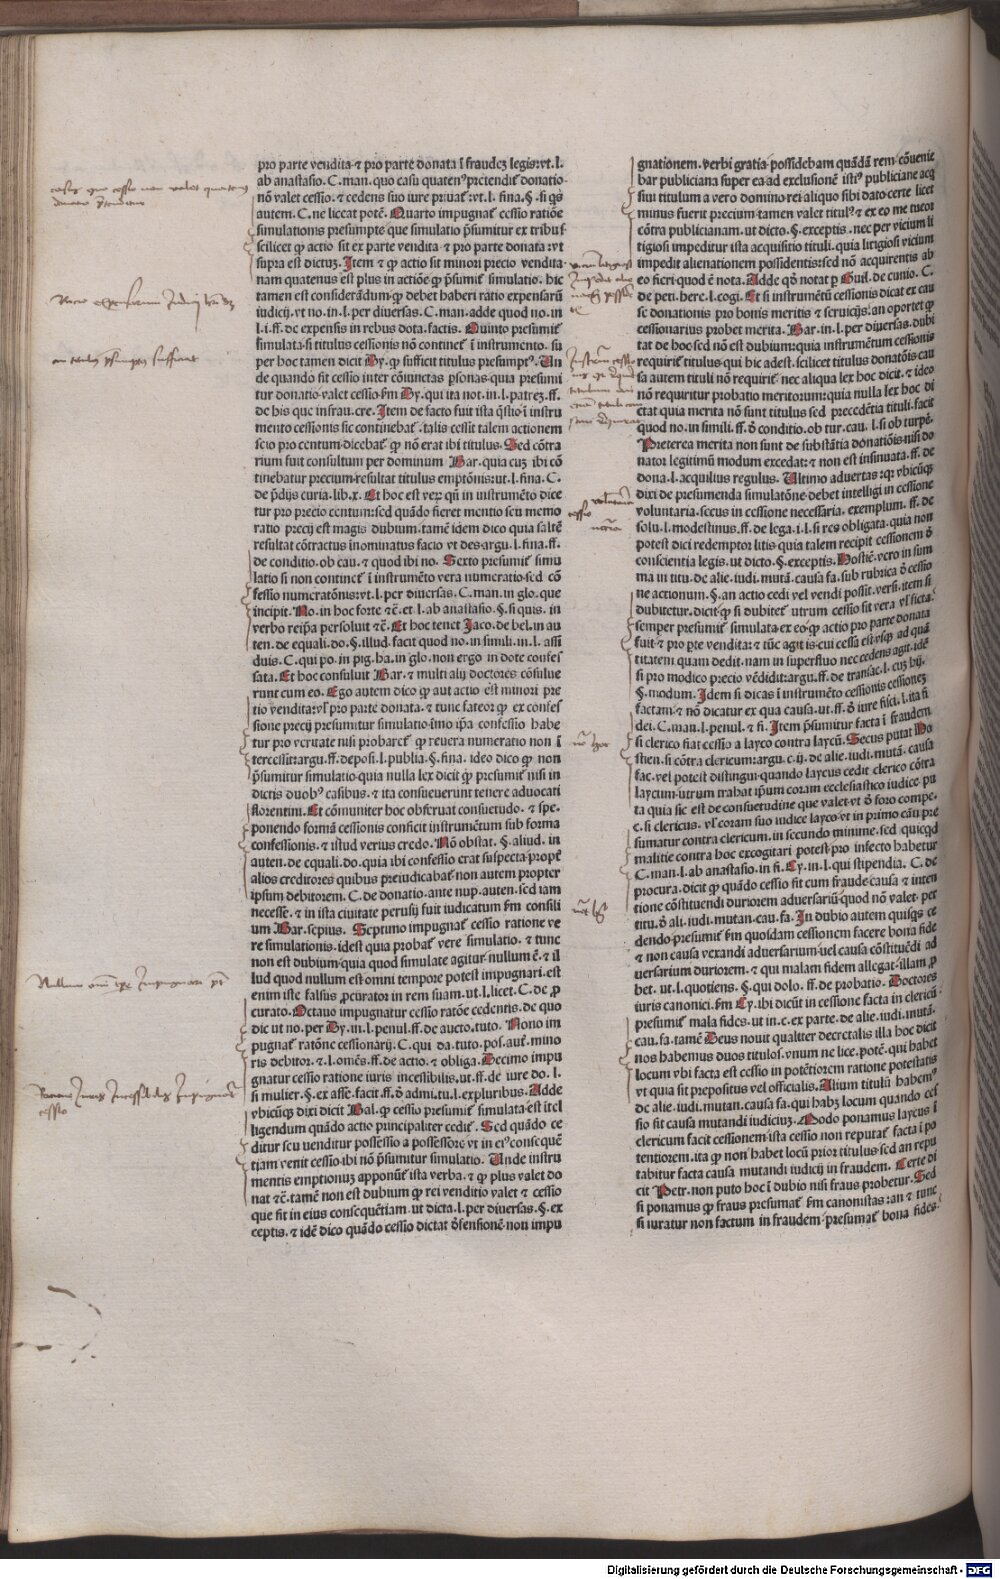 pro parte vendita ⁊ pro parte donata ī fraudeꝫ legis: vt. l.
ab anastasio. C. man. quo casu quatenꝰ pretendit̄ donatio
nō valet cessio. ⁊ cedens suo iure priuat̄: vt. l. fina. §. si q̄s
autem. C. ne liceat potē. Quarto impugnat̄ cessio ratiōe
simulationis presumpte que simulatio p̄sumitur ex tribus
scilicet ꝙ actio sit ex parte vendita ⁊ pro parte donata: vt
supra est dictuꝫ. Item ⁊ ꝙ actio sit minori precio vendita
nam quatenus est plus in actiōe ꝙ p̄sumit̄ simulatio. hic
tamen est considerādum ꝙ debet haberi ratio expensarū
iudicij. vt no. in. l. per diuersas. C. man. adde quod no. in
l. i. ff. de expensis in rebus dota. factis. Quinto presumit̄
simulata si titulus cessionis nō continet̄ ī instrumento. su
per hoc tamen dicit Dy. ꝙ sufficit titulus presumptꝰ. Un
de quando fit cessio inter cōiunctas ꝑsonas quia presumi
tur donatio valet cessio ẜm Dy. qui ita not. in. l. patreꝫ. ff.
de his que infrau. cre. Item de facto fuit ista q̄stio ī instru
mento cessionis sic continebat̄. talis cessit talem actionem
scio pro centum dicebat̄ ꝙ nō erat ibi titulus. Sed cōtra
rium fuit consultum per dominum Bar. quia cuꝫ ibi cō
tinebatur precium resultat titulus emptōnis: ut. l. fina. C.
de p̄dijs curia. lib. x. Et hoc est veꝝ qn̄ in instrumēto dice
tur pro precio centum: sed quādo fieret mentio seu memo
ratio precij est magis dubium. tamē idem dico quia saltē
resultat cōtractus inominatus facio vt des argu. l. fina. ff.
de conditio. ob cau. ⁊ quod ibi no. Sexto presumit̄ simu
latio si non continet̄ ī instrumēto vera numeratio sed cō
fessio numeratōnis: vt. l. per diuersas. C. man. in glo. que
incipit. No. in hoc forte ⁊c̄. et. l. ab anastasio. §. si quis. in
verbo reip̄a persoluit ⁊c̄. Et hoc tenet Jaco. de bel. in au
ten. de equali. do. §. illud. facit quod no. in simili. in. l. assi
duis. C. qui po. in pig. ha. in glo. non ergo in dote confes
sata. Et hoc consuluit Bar. ⁊ multi alij doctores cōsulue
runt cum eo. Ego autem dico ꝙ aut actio est minori pre
tio vendita: vl̄ pro parte donata. ⁊ tunc fateor ꝙ ex confes
sione precij presumitur simulatio: imo ip̄a confessio habe
tur pro veritate nisi probaret̄ ꝙ reuera numeratio non ī
tercessit: argu. ff. deposi. l. publia. §. fina. ideo dico ꝙ non
p̄sumitur simulatio quia nulla lex dicit ꝙ presumit̄ nisi in
dictis duobꝰ casibus. ⁊ ita consueuerunt tenere aduocati
florentini. Et cōmuniter hoc obseruat consuetudo. ⁊ spe
ponendo formā cessionis conficit instrumētum sub forma
confessionis. ⁊ istud verius credo. Nō obstat. §. aliud. in
auten. de equali. do. quia ibi confessio erat suspecta propt̄
alios creditores quibus preiudicabat̄ non autem propter
ipsum debitorem. C. de donatio. ante nup. auten. sed iam
necesse. ⁊ in ista ciuitate perusij fuit iudicatum ẜm consili
um Bar. sepius. Septimo impugnat̄ cessio ratione ve
re simulationis. idest quia probat̄ vere simulatio. ⁊ tunc
non est dubium quia quod simulate agitur nullum ē. ⁊ il
lud quod nullum est omni tempore potest impugnari. est
enim iste falsus ꝓcurator in rem suam. ut. l. licet. C. de ꝓ
curato. Octauo impugnatur cessio ratōe cedentis. de quo
dic ut no. per Dy. in. l. penul. ff. de aucto. tuto. Nono im
pugnat̄ ratōne cessionarij. C. qui da. tuto. pos. aut. mino
ris debitor. ⁊. l. omēs. ff. de actio. ⁊ obliga. Decimo impu
gnatur cessio ratione iuris incessibilis. ut. ff. de iure do. l.
si mulier. §. ex asse. facit. ff. ō admi. tu. l. expluribus. Adde
vbicūqꝫ dixi dicit Bal. ꝙ cessio presumit̄ simulata est ītel
ligendum quādo actio principaliter cedit̄. Sed quādo ce
ditur seu venditur possessio a possessore vt in eiꝰ consequē
tiam venit cessio ibi nō p̄sumitur simulatio. Unde instru
mentis emptionuꝫ apponūt̄ ista verba. ⁊ ꝙ plus valet do
nat ⁊c̄. tamē non est dubium ꝙ rei venditio valet ⁊ cessio
que fit in eius consequētiam. ut dicta. l. per diuersas. §. ex
ceptis. ⁊ idē dico quādo cessio dictat ō̄fensionē non impu
gnationem. verbi gratia possidebam quādā rem cōuenie
bar publiciana super ea ad exclusionē istiꝰ publiciane acq
siui titulum a vero domino rei aliquo sibi dato certe licet
minus fuerit precium tamen valet titulꝰ ⁊ ex eo me tueor
cōtra publicianam. ut dicto. §. exceptis. nec per vicium li
tigiosi impeditur ista acquisitio tituli. quia litigiosi vicium
impedit alienationem possidentis: sed nō acquirentis ab
eo fieri quod ē nota. Adde qd̄ notat ꝑ Guil. de cunio. C.
de peti. here. l. cogi. Et si instrumētū cessionis dicat ex cau
se donationis pro bonis meritis ⁊ seruicijs: an oportet ꝙ
cessionarius probet merita. Bar. in. l. per diuersas. dubi
tat de hoc sed nō est dubium: quia instrumētum cessionis
requirit̄ titulus qui hic adest. scilicet titulus donatōis cau
sa autem tituli nō requirit̄ nec aliqua lex hoc dicit. ⁊ ideo
nō requiritur probatio meritorum: quia nulla lex hoc di
ctat quia merita nō sunt titulus sed precedētia tituli. facit
quod no. in simili. ff. ō conditio. ob tur. cau. l. si ob turpē.
Preterea merita non sunt de substātia donatiōis nisi do
nator legitimū modum excedat: ⁊ non est insinuata. ff. de
dona. l. acquilius regulus. Ultimo aduertas: qꝛ vbicūqꝫ
dixi de presumenda simulatōne debet intelligi in cessione
voluntaria. secus in cessione necessaria. exemplum. ff. de
solu. l. modestinus. ff. de lega. i. l. si res obligata. quia non
potest dici redemptor litis quia talem recipit cessionem ō
conscientia legis. ut dicto. §. exceptis. Hostiē. vero in sum
ma in titu. de alie. iudi. mutā. causa fa. sub rubrica ō cessio
ne actionum. §. an actio cedi vel vendi possit. versi. item si
dubitetur. dicit ꝙ si dubitet̄ utrum cessio sit vera vl̄ ficta.
semper presumit̄ simulata ex eo ꝙ actio pro parte donata
fuit ⁊ pro ꝑte vendita: ⁊ tūc agit is cui cessa est vsqꝫ ad quā
titatem quam dedit. nam in superfluo nec cedens agit. idē
si pro modico precio vēdidit: argu. ff. de transac. l. cuꝫ hij.
§. modum. Idem si dicas ī instrumēto cessionis cessioneꝫ
factam. ⁊ nō dicatur ex qua causa. ut. ff. ō iure fisci. l. ita fi
dei. C. man. l. penul. ⁊ fi. Item p̄sumitur facta ī fraudem
si clerico fiat cessio a layco contra laycū. Secus putat Ho
stien. si cōtra clericum: argu. c. ij. de alie. iudi. mutā. causa
fac. vel potest distingui quando laycus cedit clerico cōtra
laycum: utrum trahat ip̄um coram ecclesiastico iudice pu
ta quia sic est de consuetudine que valet vt ō foro compe.
c. si clericus. vl̄ coram suo iudice layco vt in primo cāu pre
sumatur contra clericum. in secundo minime. sed quicqd
malitie contra hoc excogitari potest pro infecto habetur
C. man. l. ab anastasio. in fi. Cy. in. l. qui stipendia. C. de
procura. dicit ꝙ quādo cessio fit cum fraude causa ⁊ inten
tione cōstituendi duriorem aduersariū quod nō valet. per
titu. ō ali. iudi. mutan. cau. fa. In dubio autem quisqꝫ ce
dendo presumit̄ ẜm quosdam cessionem facere bona fide
⁊ non causa vexandi aduersarium uel causa cōstituēdi ad
uersarium duriorem. ⁊ qui malam fidem allegat illam ꝓ
bet. ut. l. quotiens. §. qui dolo. ff. de probatio. Doctores
iuris canonici. ẜm Cy. ibi dicūt in cessione facta in clericū
presumit̄ mala fides. ut in. c. ex parte. de alie. iudi. mutā.
cau. fa. tamē Deus nouit qualiter decretalis illa hoc dicit
nos habemus duos titulos. vnum ne lice. potē. qui habet
locum vbi facta est cessio in potētiorem ratione potestatis
vt quia sit prepositus vel officialis. Alium titulū habemꝰ
de alie. iudi. mutan. causa fa. qui habꝫ locum quando ces
sio sit causa mutandi iudiciuꝫ. Modo ponamus laycus ī
clericum facit cessionem ista cessio non reputat̄ facta ī po
tentiorem. ita ꝙ non habet locū prior titulus sed an repu
tabitur facta causa mutandi iudicij in fraudem. Certe di
cit Petr. non puto hoc ī dubio nisi fraus probetur. Sed
si ponamus ꝙ fraus presumat̄ ẜm canonistas: an ⁊ tunc
si iuratur non factum in fraudem presumat̄ bona fides.
Digitalisierung gefördert durch die Deutsche Forschungsgemeinschaft - DFG